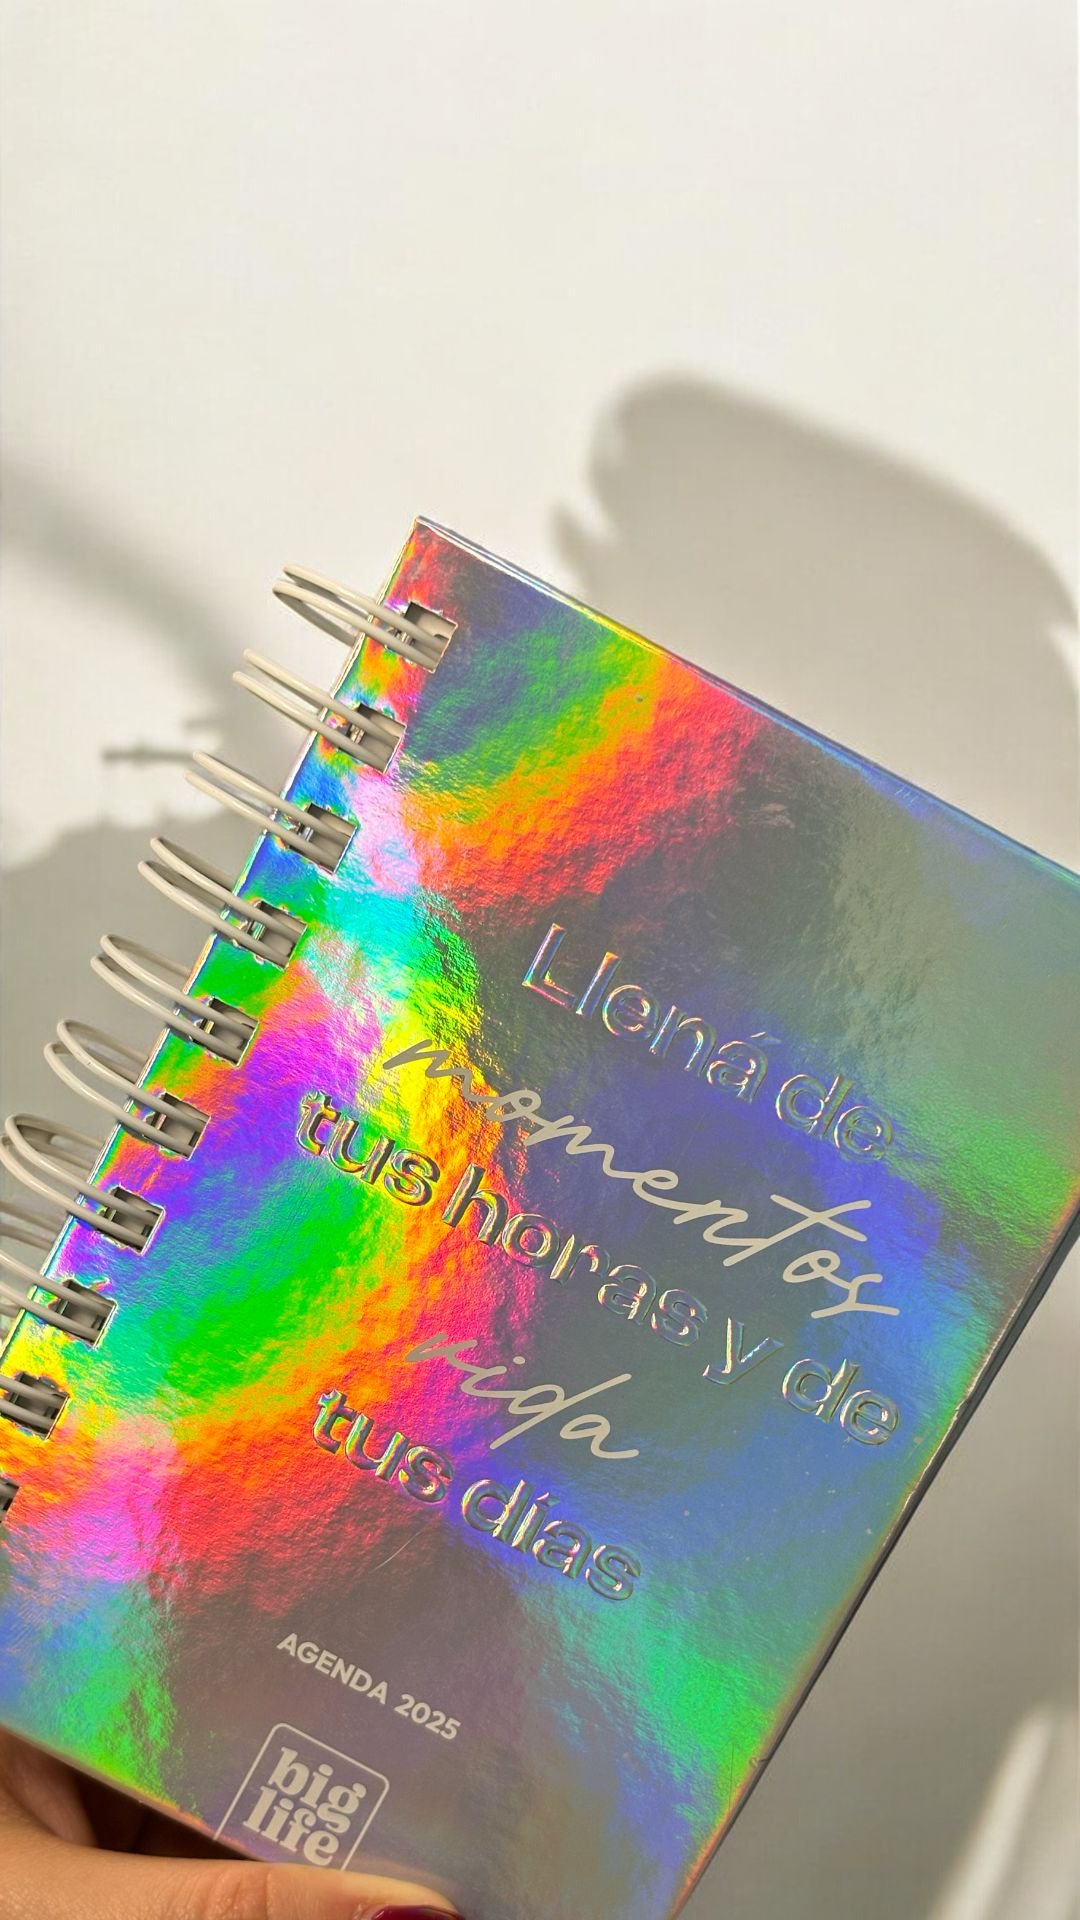 Llená de
momentos
tus horas y de
vida
tus días
AGENDA 2025
big
life